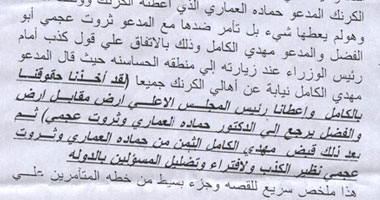 الكرنك المدعو حماده العماري الذي اعطته الكرنك
وهولم يعطها شيء بل تأمر ضدها مع المدعو ثروت عجمي أبو
الفضل والمدعو مهدي الكامل وذلك بالاتفاق علي قول كذب أمام
رئيس الوزراء عند زيارته إلي منطقه الحساسنه حيث قال المدعو
مهدي الكامل نيابة عن أهالي الكرنك جميعا (لقد أخذنا حقوقنا
بالكامل وإعطانا رئيس المجلس الاعلي ارض مقابل ارض
والفضل يرجع الي الدكتور حماده العماري وثروت عجمي) ثم
بعد ذلك قبض مهدي الكامل الثمن من حماده العماري وثروت
عجمي نظير الكذب والافتراء وتضليل المسؤلين بالدوله
هذا ملخص سريع للقصه وجزء بسيط من خطه المتأمرين علي